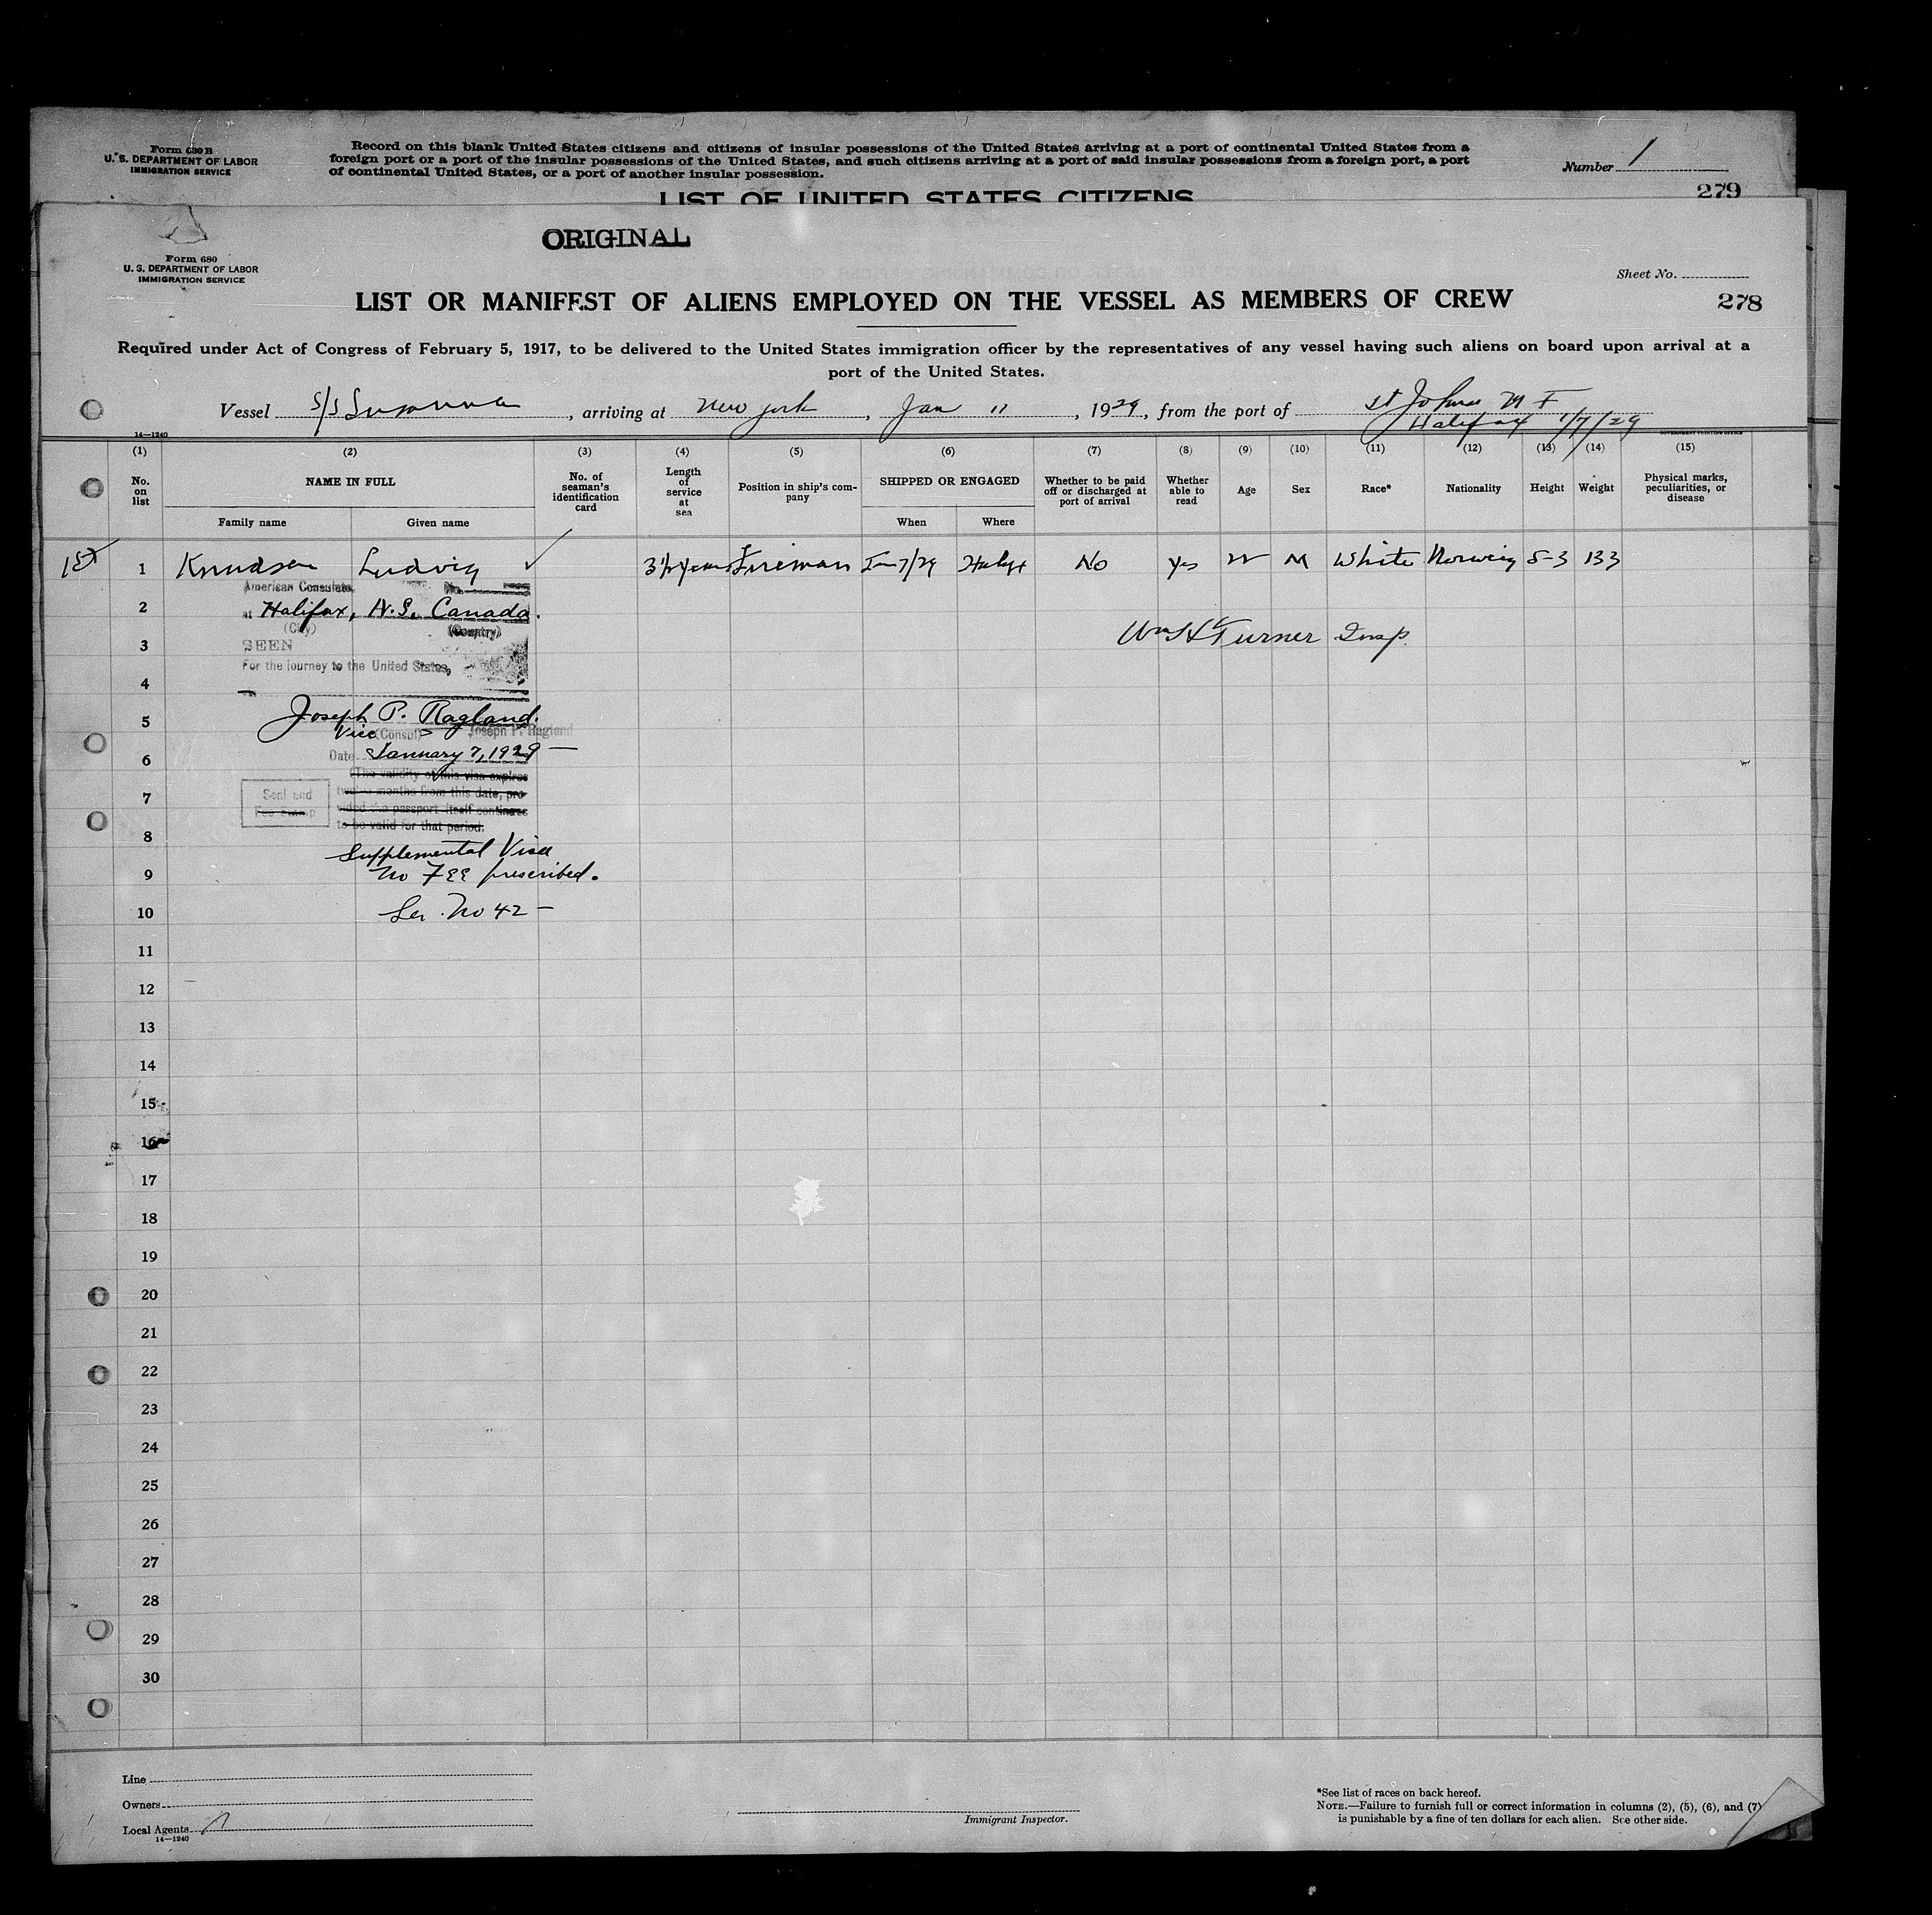 Form 680 B
U. S. DEPARTMENT OF LABOR
IMMIGRATION SERVICE
Record on this blank United States citizens and citizens of insular possessions of the United States arriving at a port of continental United States from a
foreign port or a port of the insular possessions of the United States, and such citizens arriving at a port of said insular possessions from a foreign port, a port
of continental United States, or a port of another insular possession.
Number 1
279
LIST OF UNITED STATES CITIZENS
ORIGINAL
Form 680
U. S. DEPARTMENT OF LABOR
IMMIGRATION SERVICE
Sheet No.
LIST OR MANIFEST OF ALIENS EMPLOYED ON THE VESSEL AS MEMBERS OF CREW
278
Required under Act of Congress of February 5, 1917, to be delivered to the United States immigration officer by the representatives of any vessel having such aliens on board upon arrival at a
port of the United States.
Vessel S/S Susanna, arriving at New York, Jan 11, 1929, from the port of St Johns N F
Halifax 1/7/29
14—1240
GOVERNMENT PRINTING OFFICE
(1) (2) (3) (4) (5) (6) (7) (8) (9) (10) (11) (12) (13) (14) (15)
No. on list
NAME IN FULL
Family name
Given name
No. of seaman's identification card
Length of service at sea
Position in ship's company
SHIPPED OR ENGAGED
When
Where
Whether to be paid off or discharged at port of arrival
Whether able to read
Age
Sex
Race*
Nationality
Height
Weight
Physical marks, peculiarities, or disease
1 Knudsen Ludvig 3 1/2 years Fireman Jan 7/29 No Yes M White 5-3 133
American Consulate, No.
2
at Halifax, N.S. Canada.
(City) (Country)
3
SEEN
Wm H Turner Insp.
For the journey to the United States,
4
Joseph P. Ragland.
5
Vice (Consul) Joseph P. Ragland
6
Date January 7, 1929
(The validity of this visa expires
7
Seal and
Fee Stamp
twelve months from this date, pro-
vided the passport itself continues
to be valid for that period.
8
Supplemental Visa
9
No Fee prescribed.
10
Ser. No 42
11
12
13
14
15
16
17
18
19
20
21
22
23
24
25
26
27
28
29
30
Line
Owners
Local Agents
14—1240
Immigrant Inspector.
*See list of races on back hereof.
NOTE.—Failure to furnish full or correct information in columns (2), (5), (6), and (7)
is punishable by a fine of ten dollars for each alien. See other side.